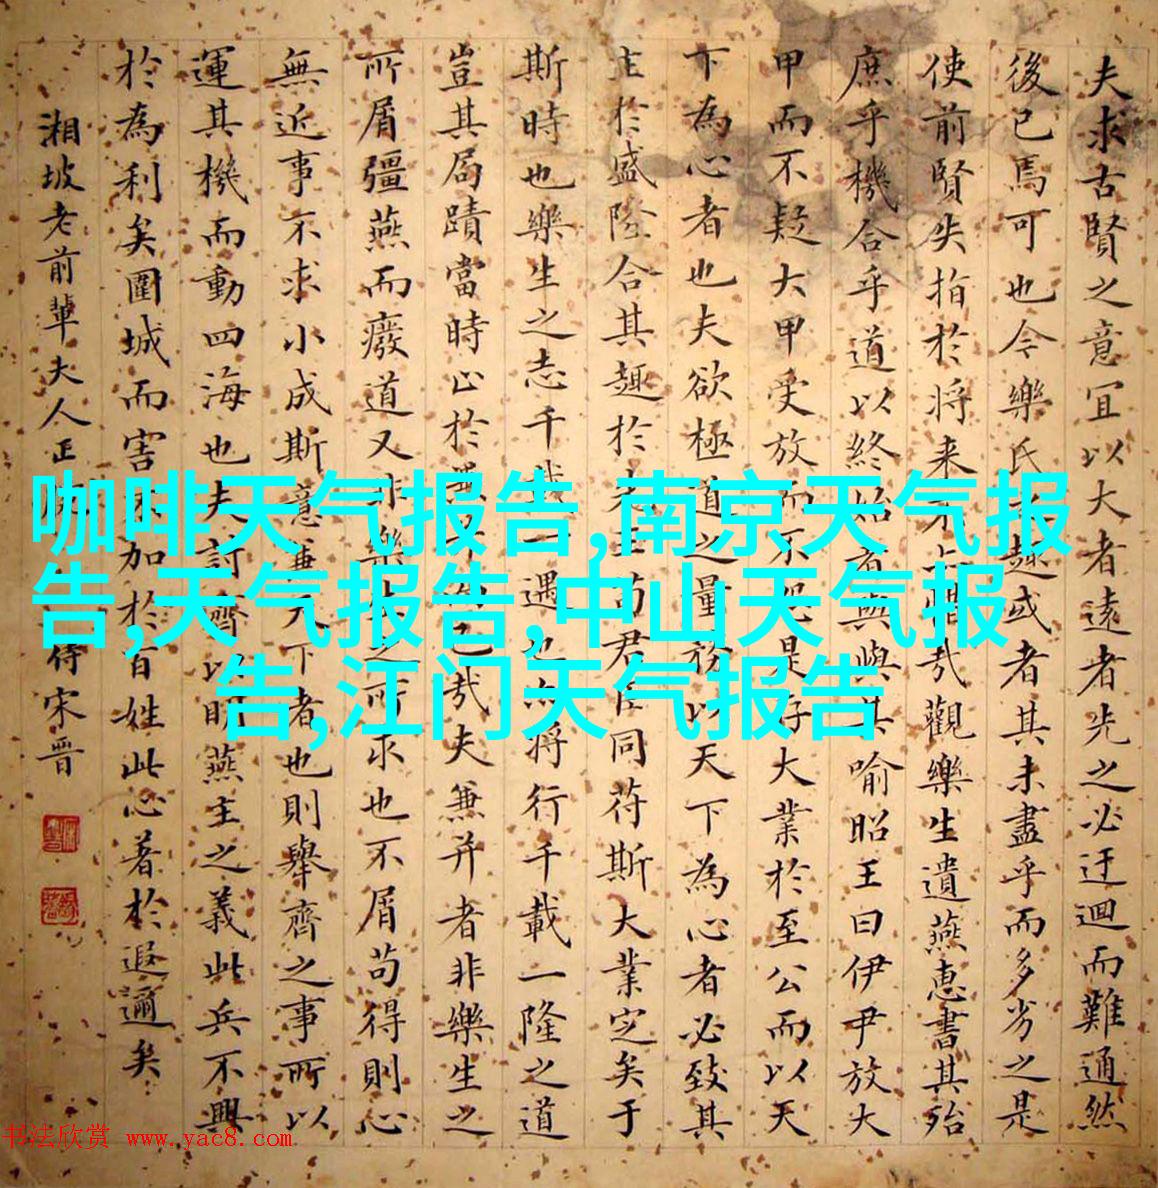 咖啡天气报告,南京天气报
告,天气报告,中山天气报
告,江门天气报告
夫求古賢之意宜以大者遠者先之必迂迴而難通然
後已焉可也今樂氏之趣或者其未盡乎而多劣之是
使前賢失指於将来不亦惜哉觀樂生遺燕惠書其殆
庶乎機合乎道以終始者與與其喻昭王曰伊尹放大
甲而不疑大甲受放而不怨是存大業於至公而以天
下為心者也夫欲極道之量務以天下為心者必致其
主於盛隆合其趣於先王苟君臣同苻斯大業定矣于
斯時也樂生之志千載一遇也亦将行千載一隆之道
豈其局蹟當時止於兼并而已哉夫兼并者非樂生之
所屑彊燕而廢道又非樂生之所求也不屑苟得則心
無近事不求小成斯意兼天下者也則舉齊之事所以
運其機而動四海也夫討齊以明燕主之義此兵不興
於為利矣圍城而害不加於百姓此心著於遐邇矣
湘坡老前輩夫人正 侍宋晋
书法欣赏 www.yac8.com